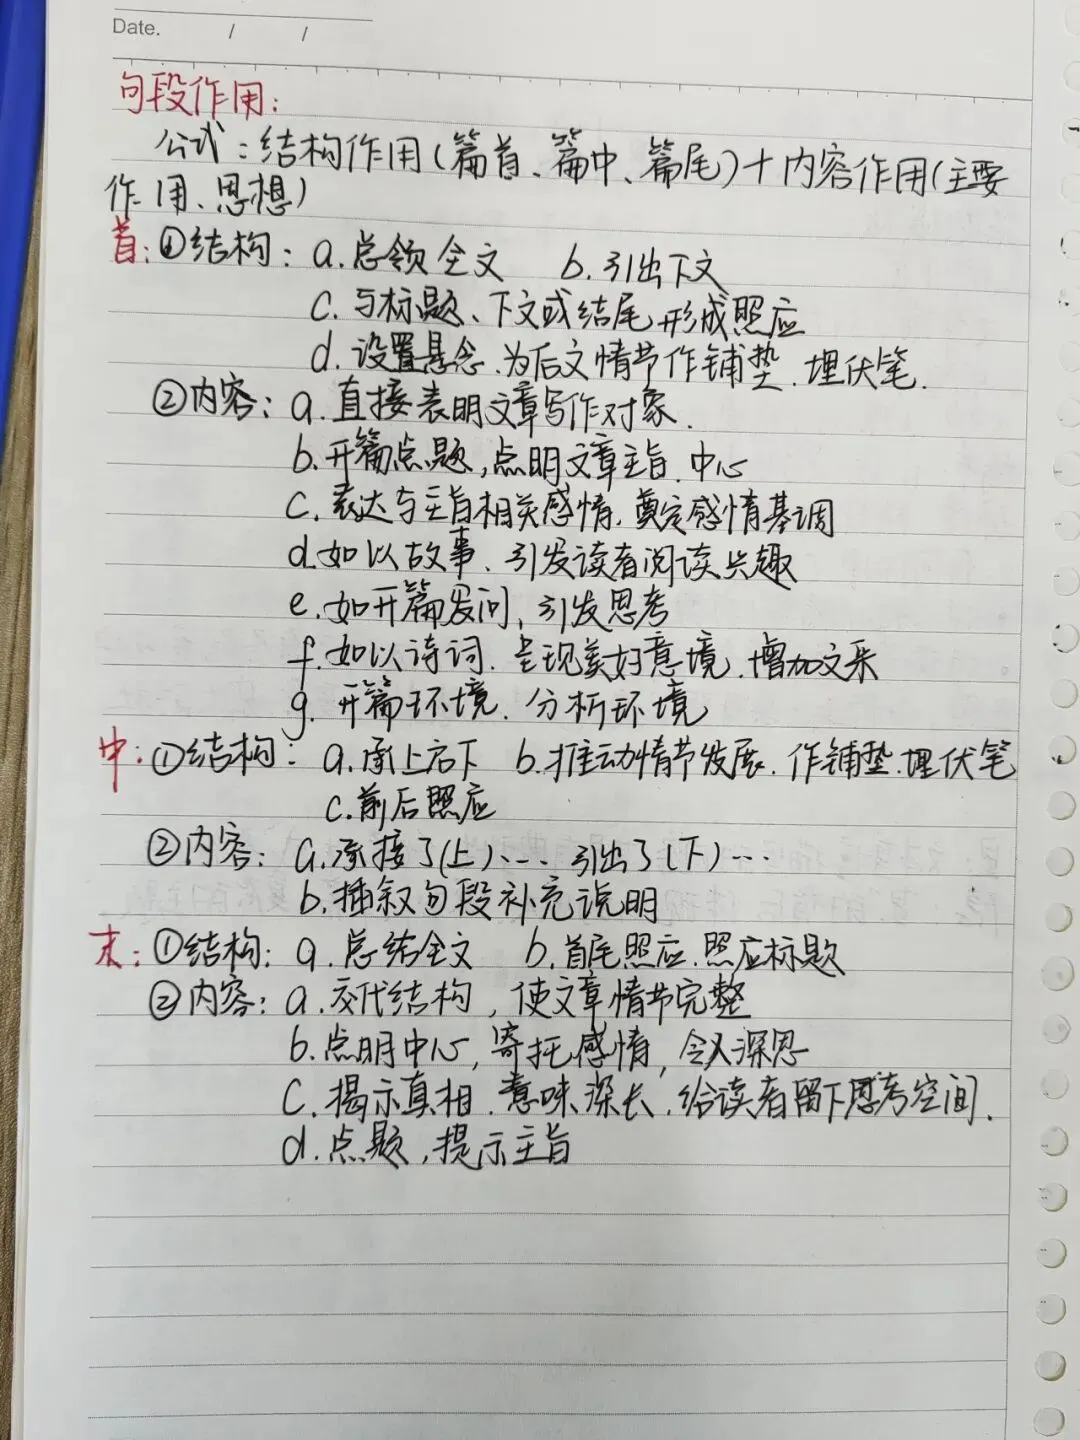 Date. / /
句段作用:
公式:结构作用(篇首、篇中、篇尾)+内容作用(主要
作用、思想)
首:①结构: a.总领全文 b.引出下文
c.与标题、下文或结尾形成照应
d.设置悬念.为后文情节作铺垫.埋伏笔.
②内容: a.直接表明文章写作对象.
b.开篇点题,点明文章主旨.中心
c.表达与主旨相关感情,奠定感情基调
d.如以故事.引发读者阅读兴趣
e.如开篇发问,引发思考
f.如以诗词.呈现美好意境.增加文采
g.开篇环境.分析环境
中:①结构: a.承上启下 b.推动情节发展.作铺垫.埋伏笔
c.前后照应
②内容: a.承接了(上)... 引出了(下)...
b.插叙句段补充说明
末:①结构: a.总结全文 b.首尾照应.照应标题
②内容: a.交代结构,使文章情节完整
b.点明中心,寄托感情,令人深思
c.揭示真相.意味深长,给读者留下思考空间.
d.点题,提示主旨